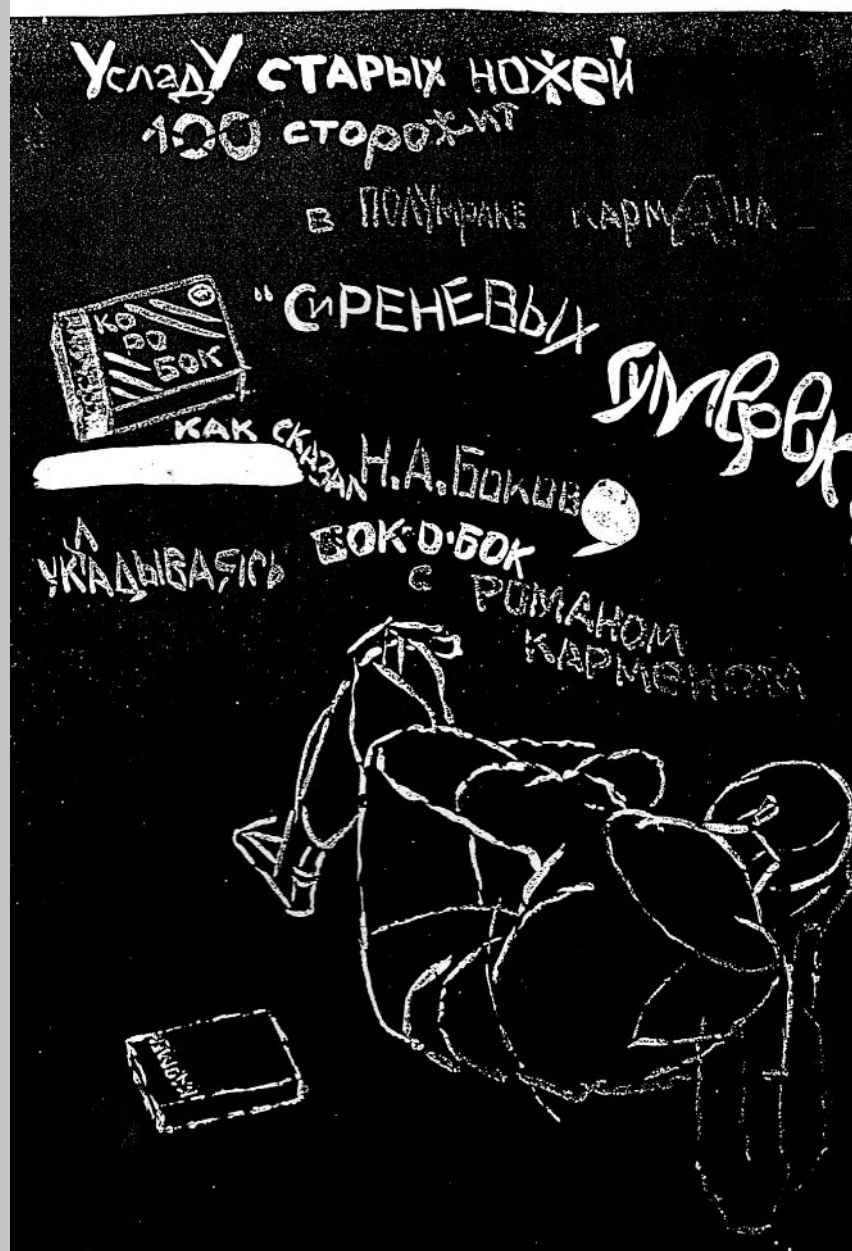 УсладУ СТАРЫХ НОЖЕЙ
100 СТОРОЖИТ
В ПОЛУМРАКЕ КАРМАНА
КО
РО
БОК
"СИРЕНЕВЫХ
КАК СКАЗАЛ Н.А.БОКОВ,
УКЛАДЫВАЯСЬ БОК-О-БОК
С РОМАНОМ
КАРМЕНОМ